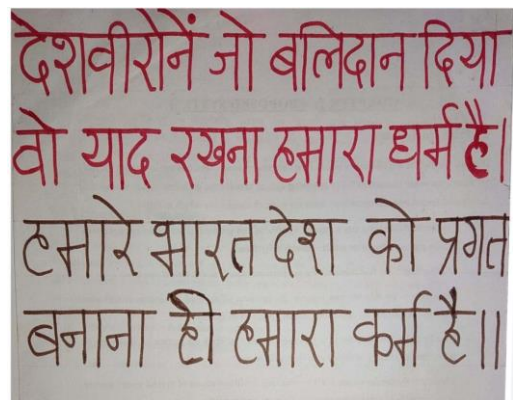 देशवीरोनें जो बलिदान दिया
वो याद रखना हमारा धर्म है।
हमारे भारत देश को प्रगत
बनाना ही हमारा कर्म है॥